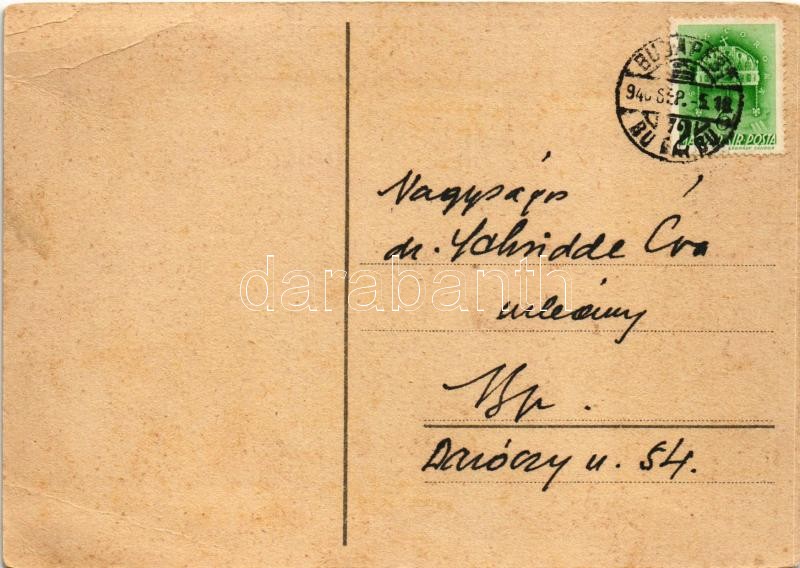 BUDAPEST
940 SEP. -5. 18
72
MAGYAR POSTA
Nagyságos
dr. Schridde Éva
úrleány
Bp.
Daróczy u. 54.
darabanth